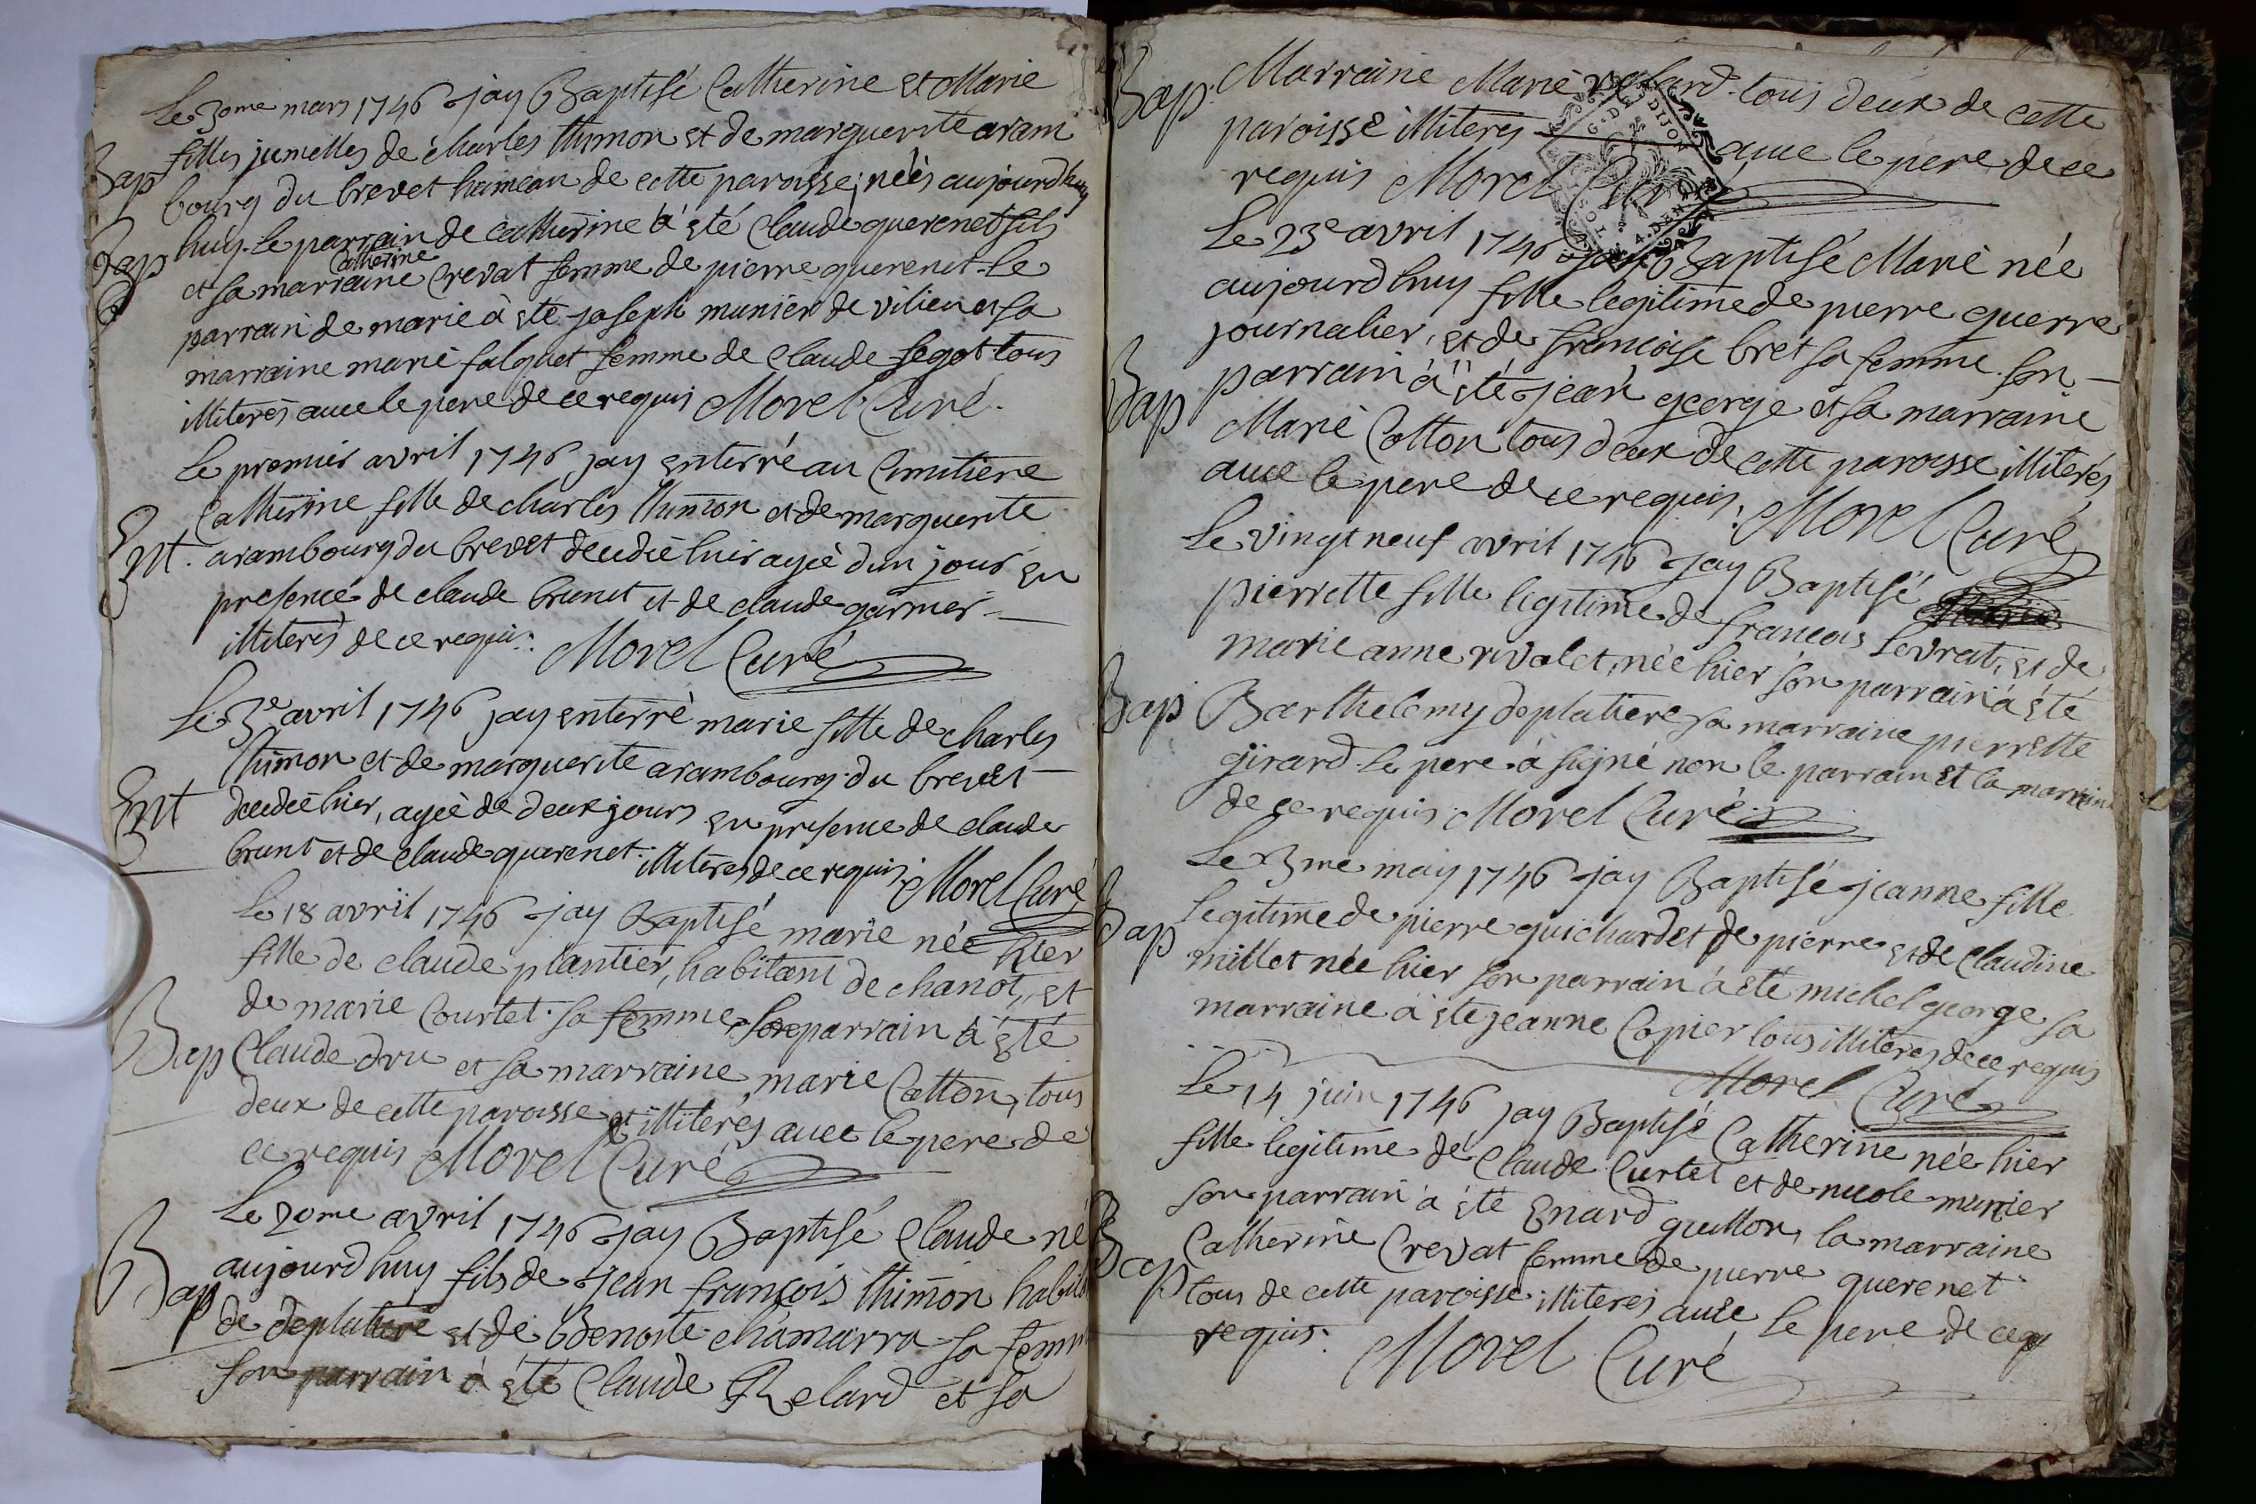 Le 30me mars 1746 jay Baptisé Catherine et Marie
Bap filles jumelles de charles thimon et de marguerite aram
bourg du brevet hameau de cette paroisse, néés aujourdhuy
Bap huy. le parrain de catherine à été Claude querenet fils
Catherine
et sa marraine Crevat femme de pierre querenet. Le
parrain de marie à été joseph munier de vilieu et sa
marraine marie falquet femme de Claude segot tous
illiterés avec le pere de ce requis Morel Curé.
Le premier avril 1746 jay enterré au Cimitiere
Catherine fille de charles thimon et de marguerite
Ent. arambourg du brevet decedée hier agée d'un jour en
presence de claude brunet et de claude garnier
illiterés de ce requis: Morel Curé
Le 3e avril 1746 jay enterré marie fille de charles
thimon et de marguerite arambourg du brevet
Ent decedée hier, agée de deux jours en presence de claude
brunt et de Claude querenet: illiterés de ce requis Morel Curé
Le 18 avril 1746 jay Baptisé marie née hier
fille de claude plantier, habitant de chanot, et
de marie Courtet sa femme, son parrain à été
Bap Claude dru et sa marraine marie Cotton, tous
deux de cette paroisse et illiterés avec le pere de
ce requis Morel Curé
Le 20me avril 1746 jay Baptisé Claude né
aujourdhuy fils de jean françois thimon habit
Bap de deplatiere et de Benoite chamarra sa femm
son parrain à été Claude Relard et sa
Bap. Marraine Marie relard. tous deux de cette
paroisse illiterés avec le pere de ce
requis Morel Curé
G. DE DIJON
Le 23e avril 1746 jay Baptisé Marie née
aujourdhuy fille legitime de pierre guerre
journalier, et de françoise bret sa femme. son
Bap parrain à été jean george et sa marraine
Marie Cotton tous deux de cette paroisse illiterés
avec le pere de ce requis. Morel Curé
Le vingt neuf avril 1746 jay Baptisé
pierrette fille legitime de francois Levrat, et de
marie anne rivalet, née hier son parrain à été
Bap Barthelemy deplatiere sa marraine pierrette
girard. le pere à signé non le parrain et la marraine
de ce requis. Morel Curé
Le 3me may 1746 jay Baptisé jeanne fille
Bap legitime de pierre guichardet de pierre et de Claudine
millet née hier son parrain à été michel george sa
marraine à été jeanne Copier tous illiterés de ce requis
Morel Curé
Le 14 juin 1746 jay Baptisé Catherine née hier
fille legitime de Claude Curtet et de nicole munier
son parrain à été Enard guillon, la marraine
Bap Catherine Crevat femme de pierre querenet
tous de cette paroisse illiterés avec le pere de ce
requis. Morel Curé